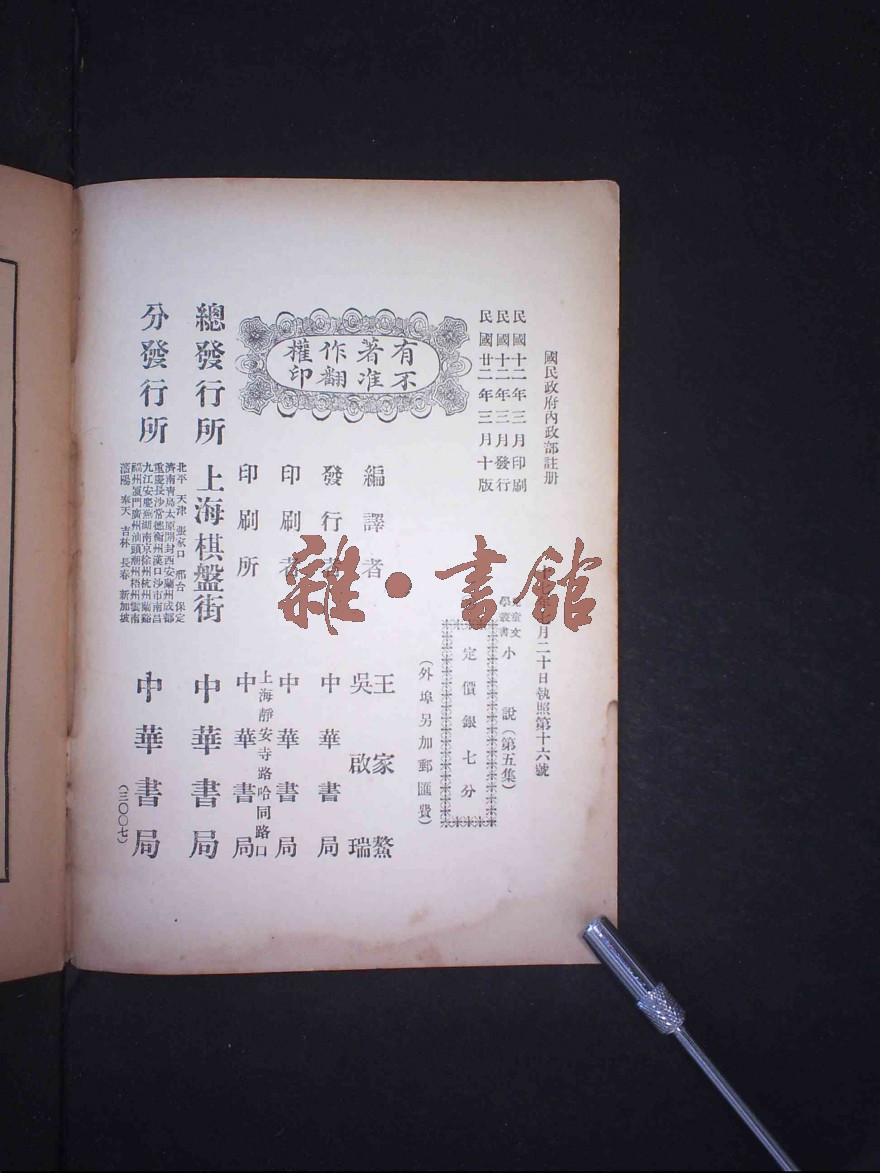 國民政府內政部註册
月二十日執照第十六號
民國十二年三月印刷
民國十二年三月發行
民國廿二年三月十版
童文
學叢書
小說(第五集)
定價銀七分
(外埠另加郵匯費)
有不
著准
作翻
權印
編譯者
王家鰲
吳啟瑞
發行者
中華書局
印刷者
中華書局
印刷所
上海靜安寺路哈同路口
中華書局
總發行所
上海棋盤街
中華書局
分發行所
北平 天津 張家口 邢台 保定
濟南青島太原開封西安蘭州成都
重慶長沙常德衡州漢口沙市南昌
九江安慶蕪湖南京徐州杭州蘭谿
福州廈門廣州汕頭潮州梧州雲南
瀋陽 奉天 吉林 長春 新加坡
中華書局
(三〇〇七)
雜·書館